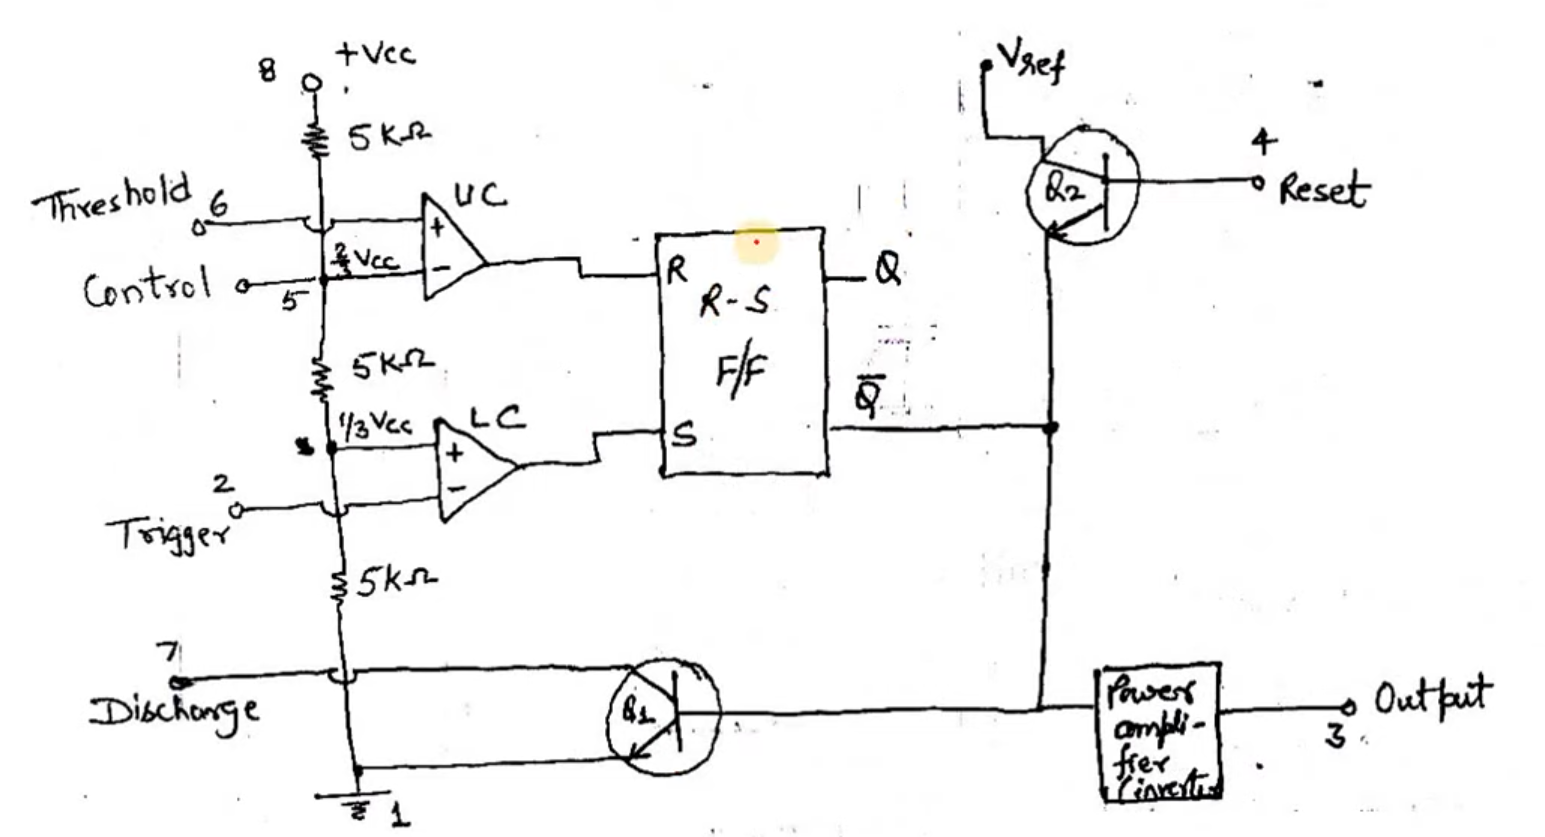 8
+Vcc
5KΩ
Threshold
6
UC
+
-
2/3 Vcc
Control
5
5KΩ
1/3 Vcc
LC
+
-
2
Trigger
5KΩ
7
Discharge
1
R
R-S
F/F
S
Q
Q̅
Vref
Q2
4
Reset
Q1
Power
ampli-
fier
(inverter
Output
3